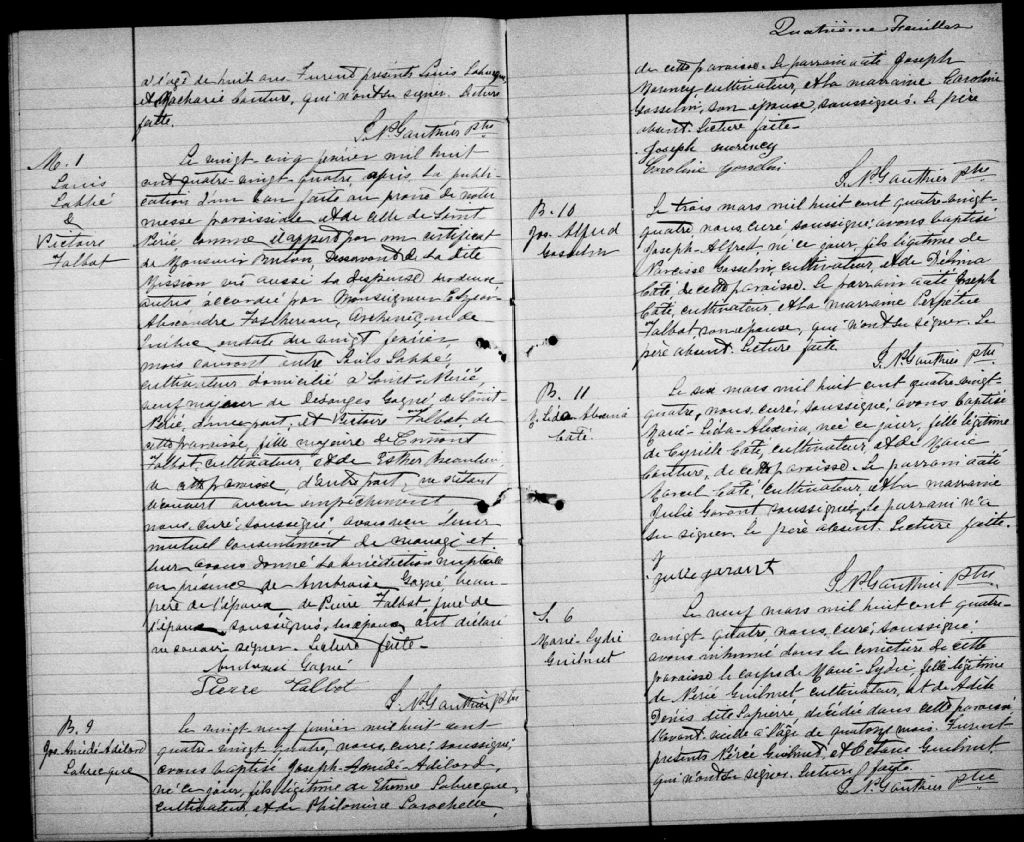 à l'âge de huit ans. Furent présents Louis Labrecque,
et Zacharie Couture, qui n'ont su signer. Lecture
faite.
J. N. Gauthier Ptre
M. 1
Louis
Labbé
&
Victoire
Talbot
Le vingt-cinq février mil huit
cent quatre-vingt-quatre, après la publi-
cation d'un ban faite au prône de notre
messe paroissiale et de celle de Saint
Nérée, comme il appert par un certificat
de Monsieur de la dite
Mission vu aussi la dispense de deux
autres accordée par Monseigneur Elzéar
Alexandre Taschereau, Archevêque de
Québec en date du vingt février,
mois courant entre Louis Labbé,
cultivateur domicilié à Saint-Nérée,
veuf majeur de Desanges Gagné, de Saint-
Nérée, d'une part, et Victoire Talbot, de
cette paroisse, fille majeure de
Talbot, cultivateur, et de Esther
de cette paroisse, d'autre part, ne s'étant
découvert aucun empêchement
nous, curé, soussigné avons reçu leur
mutuel consentement de mariage et
leur avons donné la bénédiction nuptiale
en présence de Ambroise Gagné beau-
père de l'époux, de Pierre Talbot, frère de
l'épouse soussignés, les époux ont déclaré
ne savoir signer. Lecture faite.
Gagné
Pierre Talbot
J. N. Gauthier Ptre
B. 9
Jos. Amédé-Adélard
Labrecque
Le vingt neuf février mil huit cent
quatre-vingt-quatre, nous, curé, soussigné,
avons baptisé Joseph-Amédé-Adélard,
né ce jour, fils légitime de Etienne Labrecque,
cultivateur, et de Philomène Larochelle,
Quatrième Feuillet
de cette paroisse. Le parrain a été Joseph
Morency cultivateur, et la marraine Caroline
Gosselin, son épouse, soussignés. Le père
absent. Lecture faite.
Joseph morency
Caroline Gosselin
J. N. Gauthier Ptre
B. 10
Jos. Alfred
Gosselin
Le trois mars mil huit cent quatre-vingt-
quatre, nous, curé, soussigné, avons baptisé
Joseph-Alfred, né ce jour, fils légitime de
Narcisse Gosselin, cultivateur, et de Délima
Côté, de cette paroisse. Le parrain a été Joseph
Côté, cultivateur, et la marraine Perpétue
Talbot son épouse, qui n'ont su signer. Le
père absent. Lecture faite.
J. N. Gauthier Ptre
B. 11
Côté.
Le six mars mil huit cent quatre-vingt-
quatre, nous, curé, soussigné, avons baptisé
Marie-Lida-Alexina, née ce jour, fille légitime
de Cyrille Côté, cultivateur, et de Marie
Couture, de cette paroisse. Le parrain a été
Marcel Côté, cultivateur, et la marraine
Julie Garant, soussignée, le parrain n'a
su signer. Le père absent. Lecture faite.
julie garant
J. N. Gauthier Ptre
S. 6
Marie-Lydie
Guilmet
Le neuf mars mil huit cent quatre-
vingt-quatre, nous, curé, soussigné,
avons inhumé dans le cimetière de cette
paroisse le corps de Marie-Lydie, fille légitime
de Nérée Guilmet cultivateur, et de Adèle
Denis dite Lapierre, décédée dans cette paroisse
l'avant-veille à l'âge de quatorze mois. Furent
présents Nérée Guilmet, et Octave Guilmet
qui n'ont su signer. Lecture faite.
J. N. Gauthier Ptre